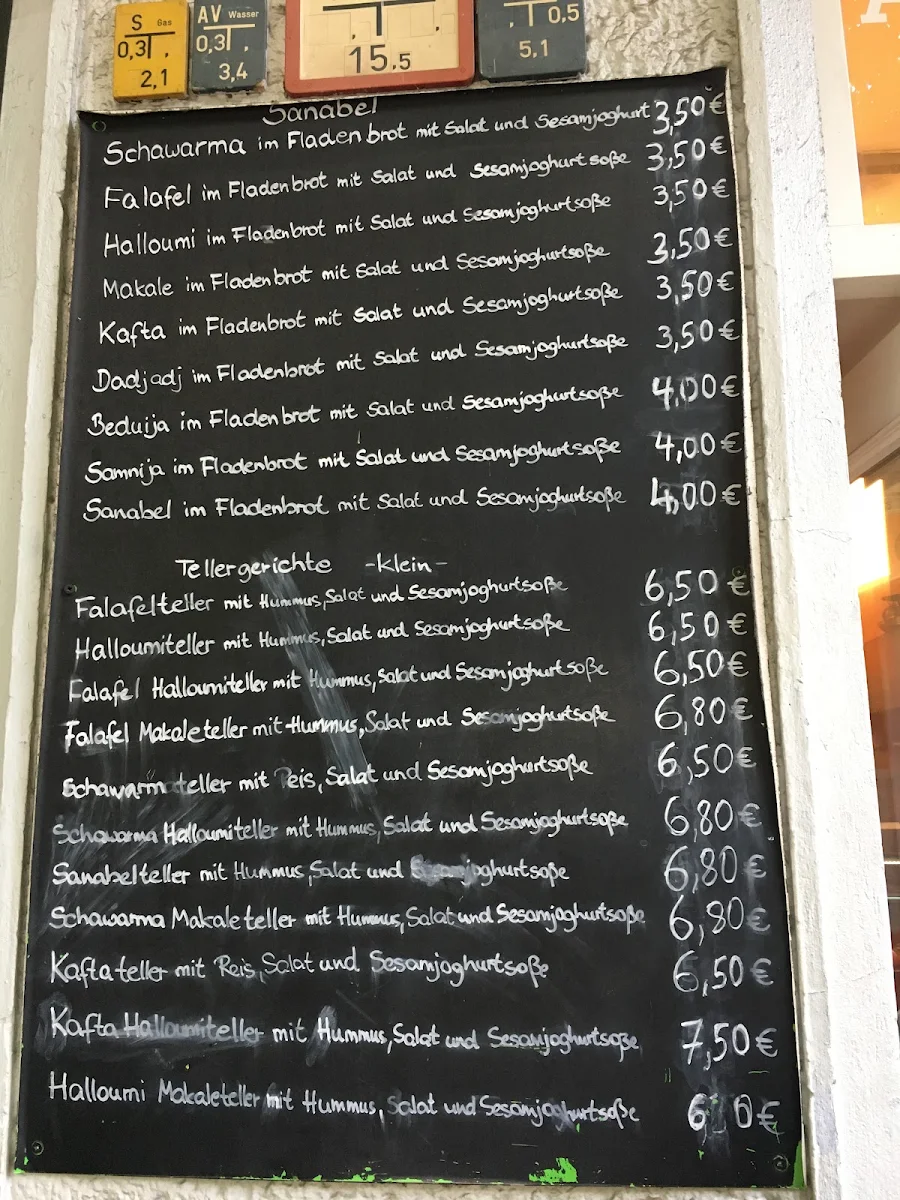 S Gas
0,3
2,1
AV Wasser
0,3
3,4
15,5
0,5
5,1
Sanabel
Schawarma im Fladenbrot mit Salat und Sesamjoghurt 3,50€
Falafel im Fladenbrot mit Salat und Sesamjoghurtsoße 3,50€
Halloumi im Fladenbrot mit Salat und Sesamjoghurtsoße 3,50€
Makale im Fladenbrot mit Salat und Sesamjoghurtsoße 3,50€
Kafta im Fladenbrot mit Salat und Sesamjoghurtsoße 3,50€
Dadjadj im Fladenbrot mit Salat und Sesamjoghurtsoße 3,50€
Beduija im Fladenbrot mit Salat und Sesamjoghurtsoße 4,00€
Samnija im Fladenbrot mit Salat und Sesamjoghurtsoße 4,00€
Sanabel im Fladenbrot mit Salat und Sesamjoghurtsoße 4,00€
Tellergerichte -klein-
Falafelteller mit Hummus, Salat und Sesamjoghurtsoße 6,50€
Halloumiteller mit Hummus, Salat und Sesamjoghurtsoße 6,50€
Falafel Halloumiteller mit Hummus, Salat und Sesamjoghurtsoße 6,50€
Falafel Makaleteller mit Hummus, Salat und Sesamjoghurtsoße 6,80€
Schawarmateller mit Reis, Salat und Sesamjoghurtsoße 6,50€
Schawarma Halloumiteller mit Hummus, Salat und Sesamjoghurtsoße 6,80€
Sanabelteller mit Hummus, Salat und Sesamjoghurtsoße 6,80€
Schawarma Makaleteller mit Hummus, Salat und Sesamjoghurtsoße 6,80€
Kaftateller mit Reis, Salat und Sesamjoghurtsoße 6,50€
Kafta Halloumiteller mit Hummus, Salat und Sesamjoghurtsoße 7,50€
Halloumi Makaleteller mit Hummus, Salat und Sesamjoghurtsoße